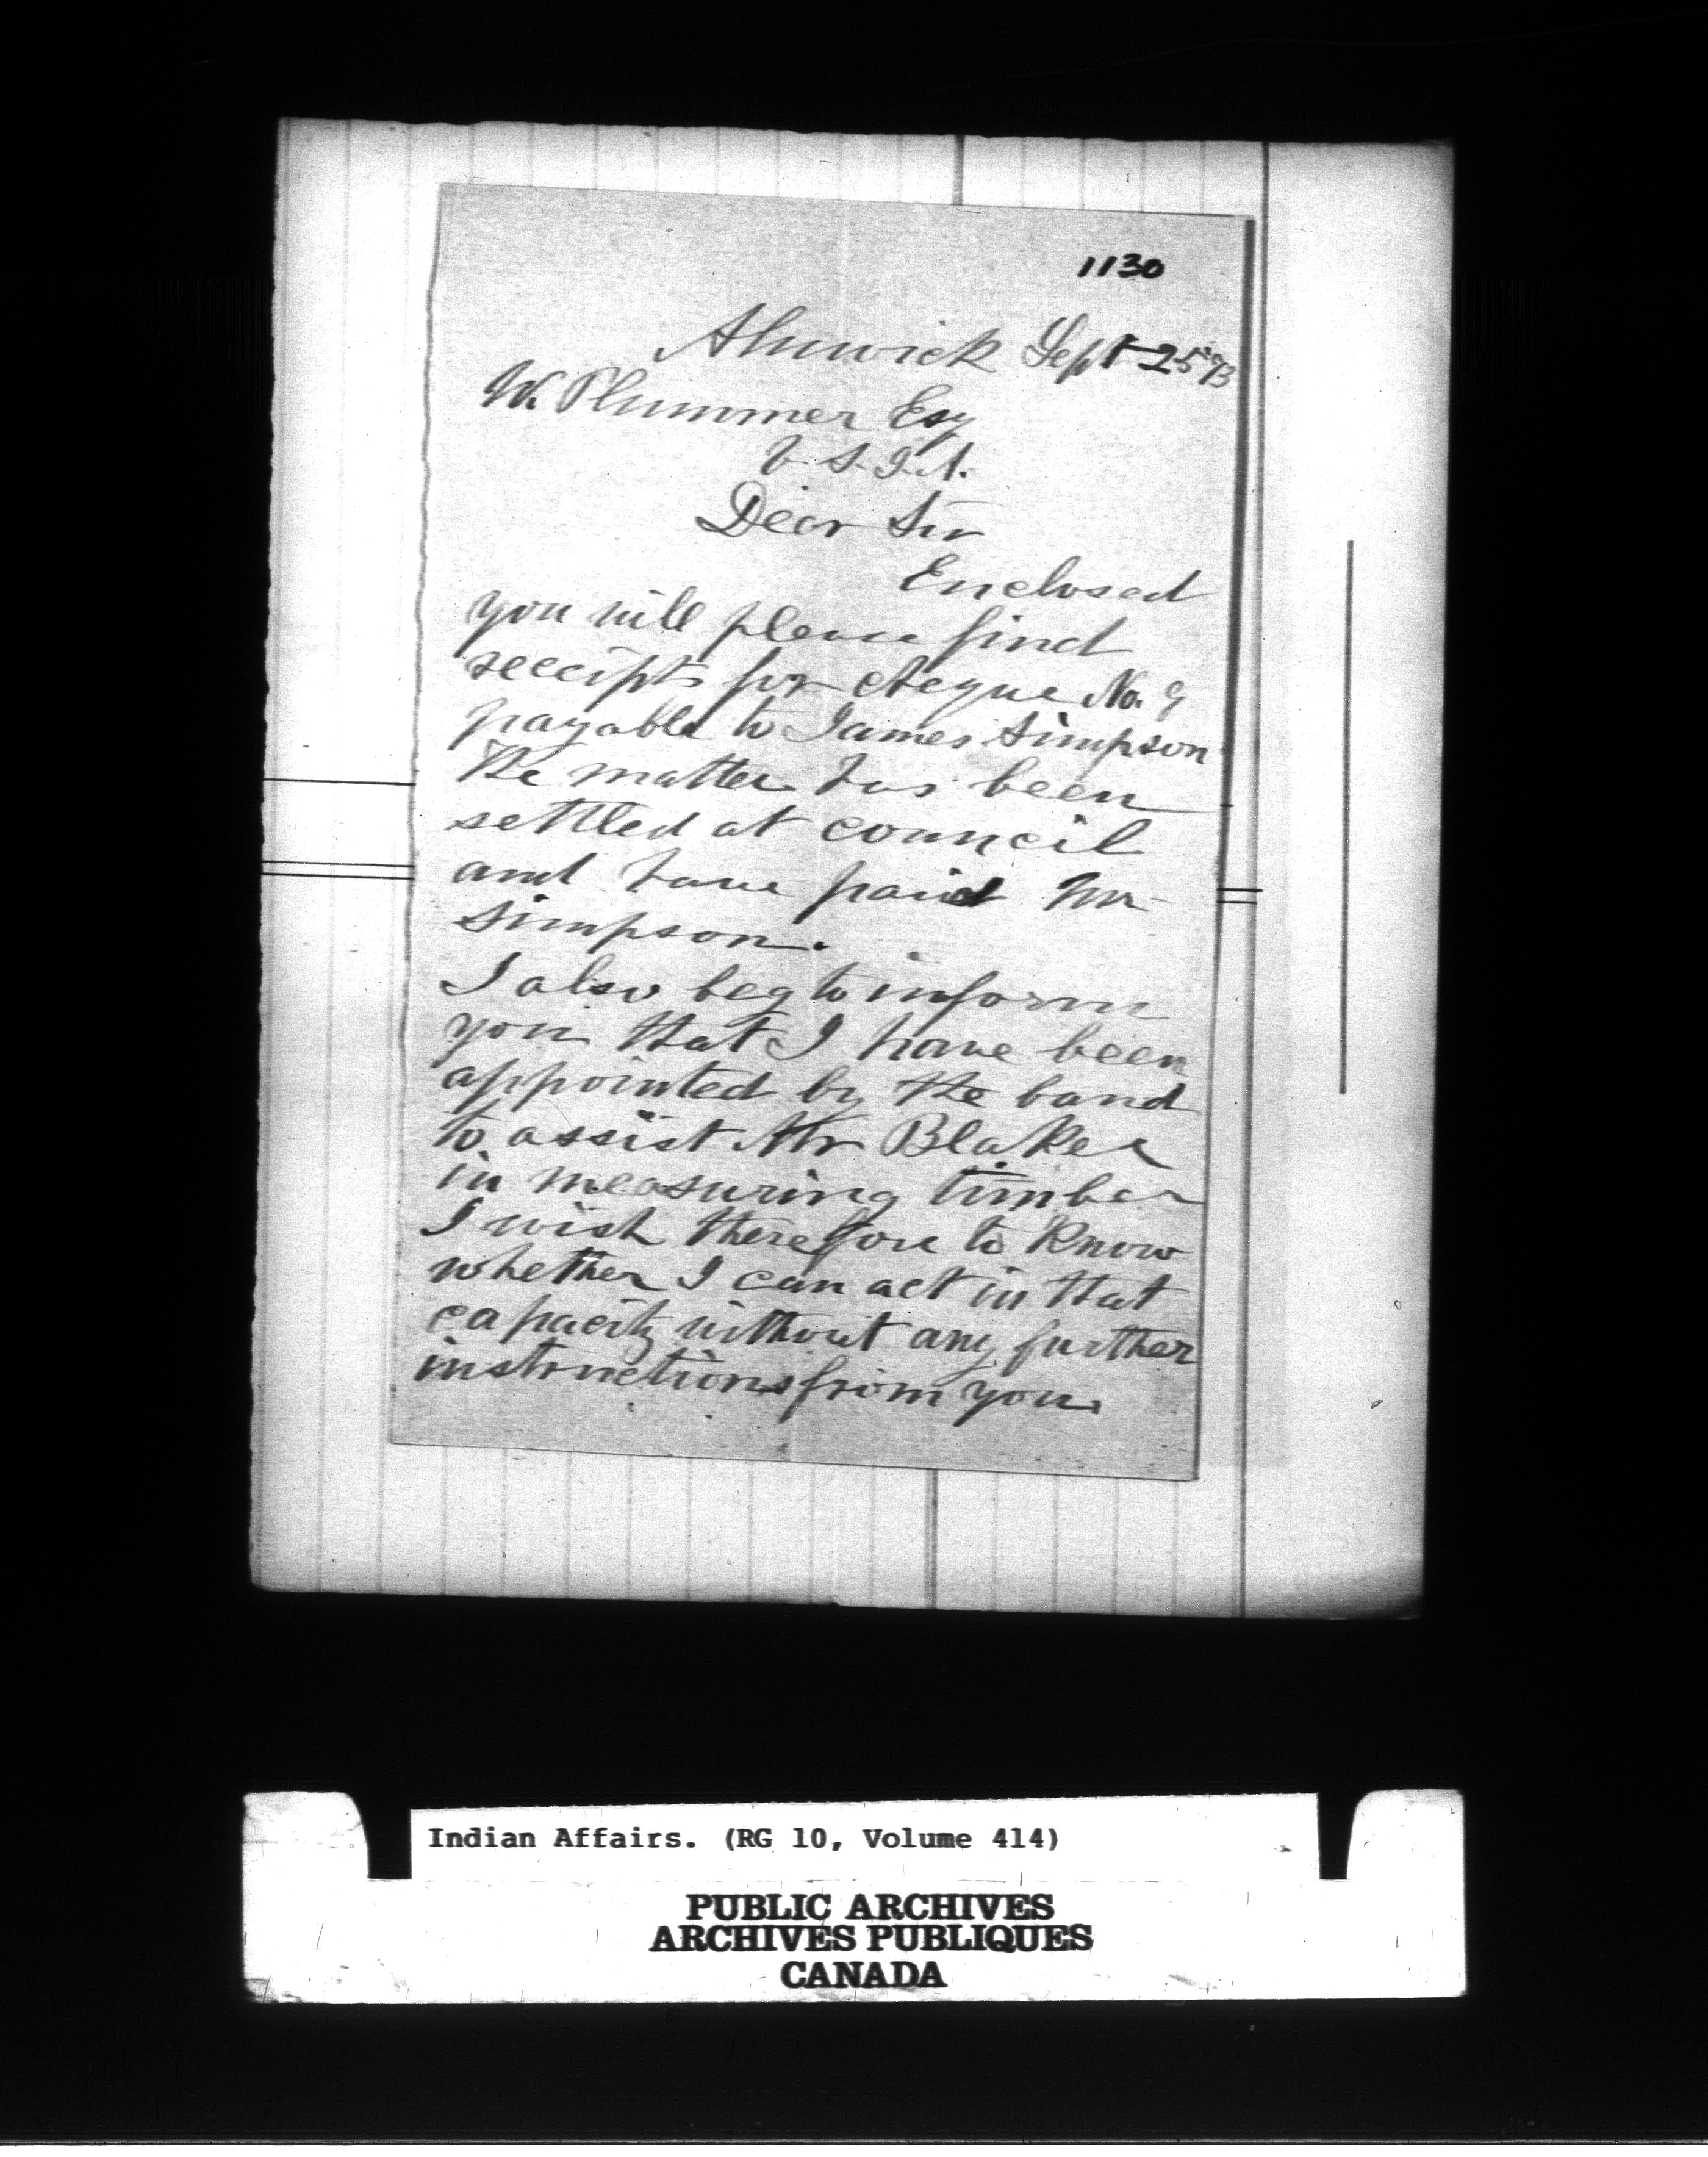 1130
Alnwick Sept 25 '73
W. Plummer Esq
V. S. I. A.
Dear Sir
Enclosed
you will please find
receipts for cheque No. 9
payable to James Simpson
The matter has been
settled at council
and have paid Mr
Simpson.
I also beg to inform
you that I have been
appointed by the band
to assist Mr Blaker
in measuring timber
I wish therefore to know
whether I can act in that
capacity without any further
instructions from you.
Indian Affairs. (RG 10, Volume 414)
PUBLIC ARCHIVES
ARCHIVES PUBLIQUES
CANADA